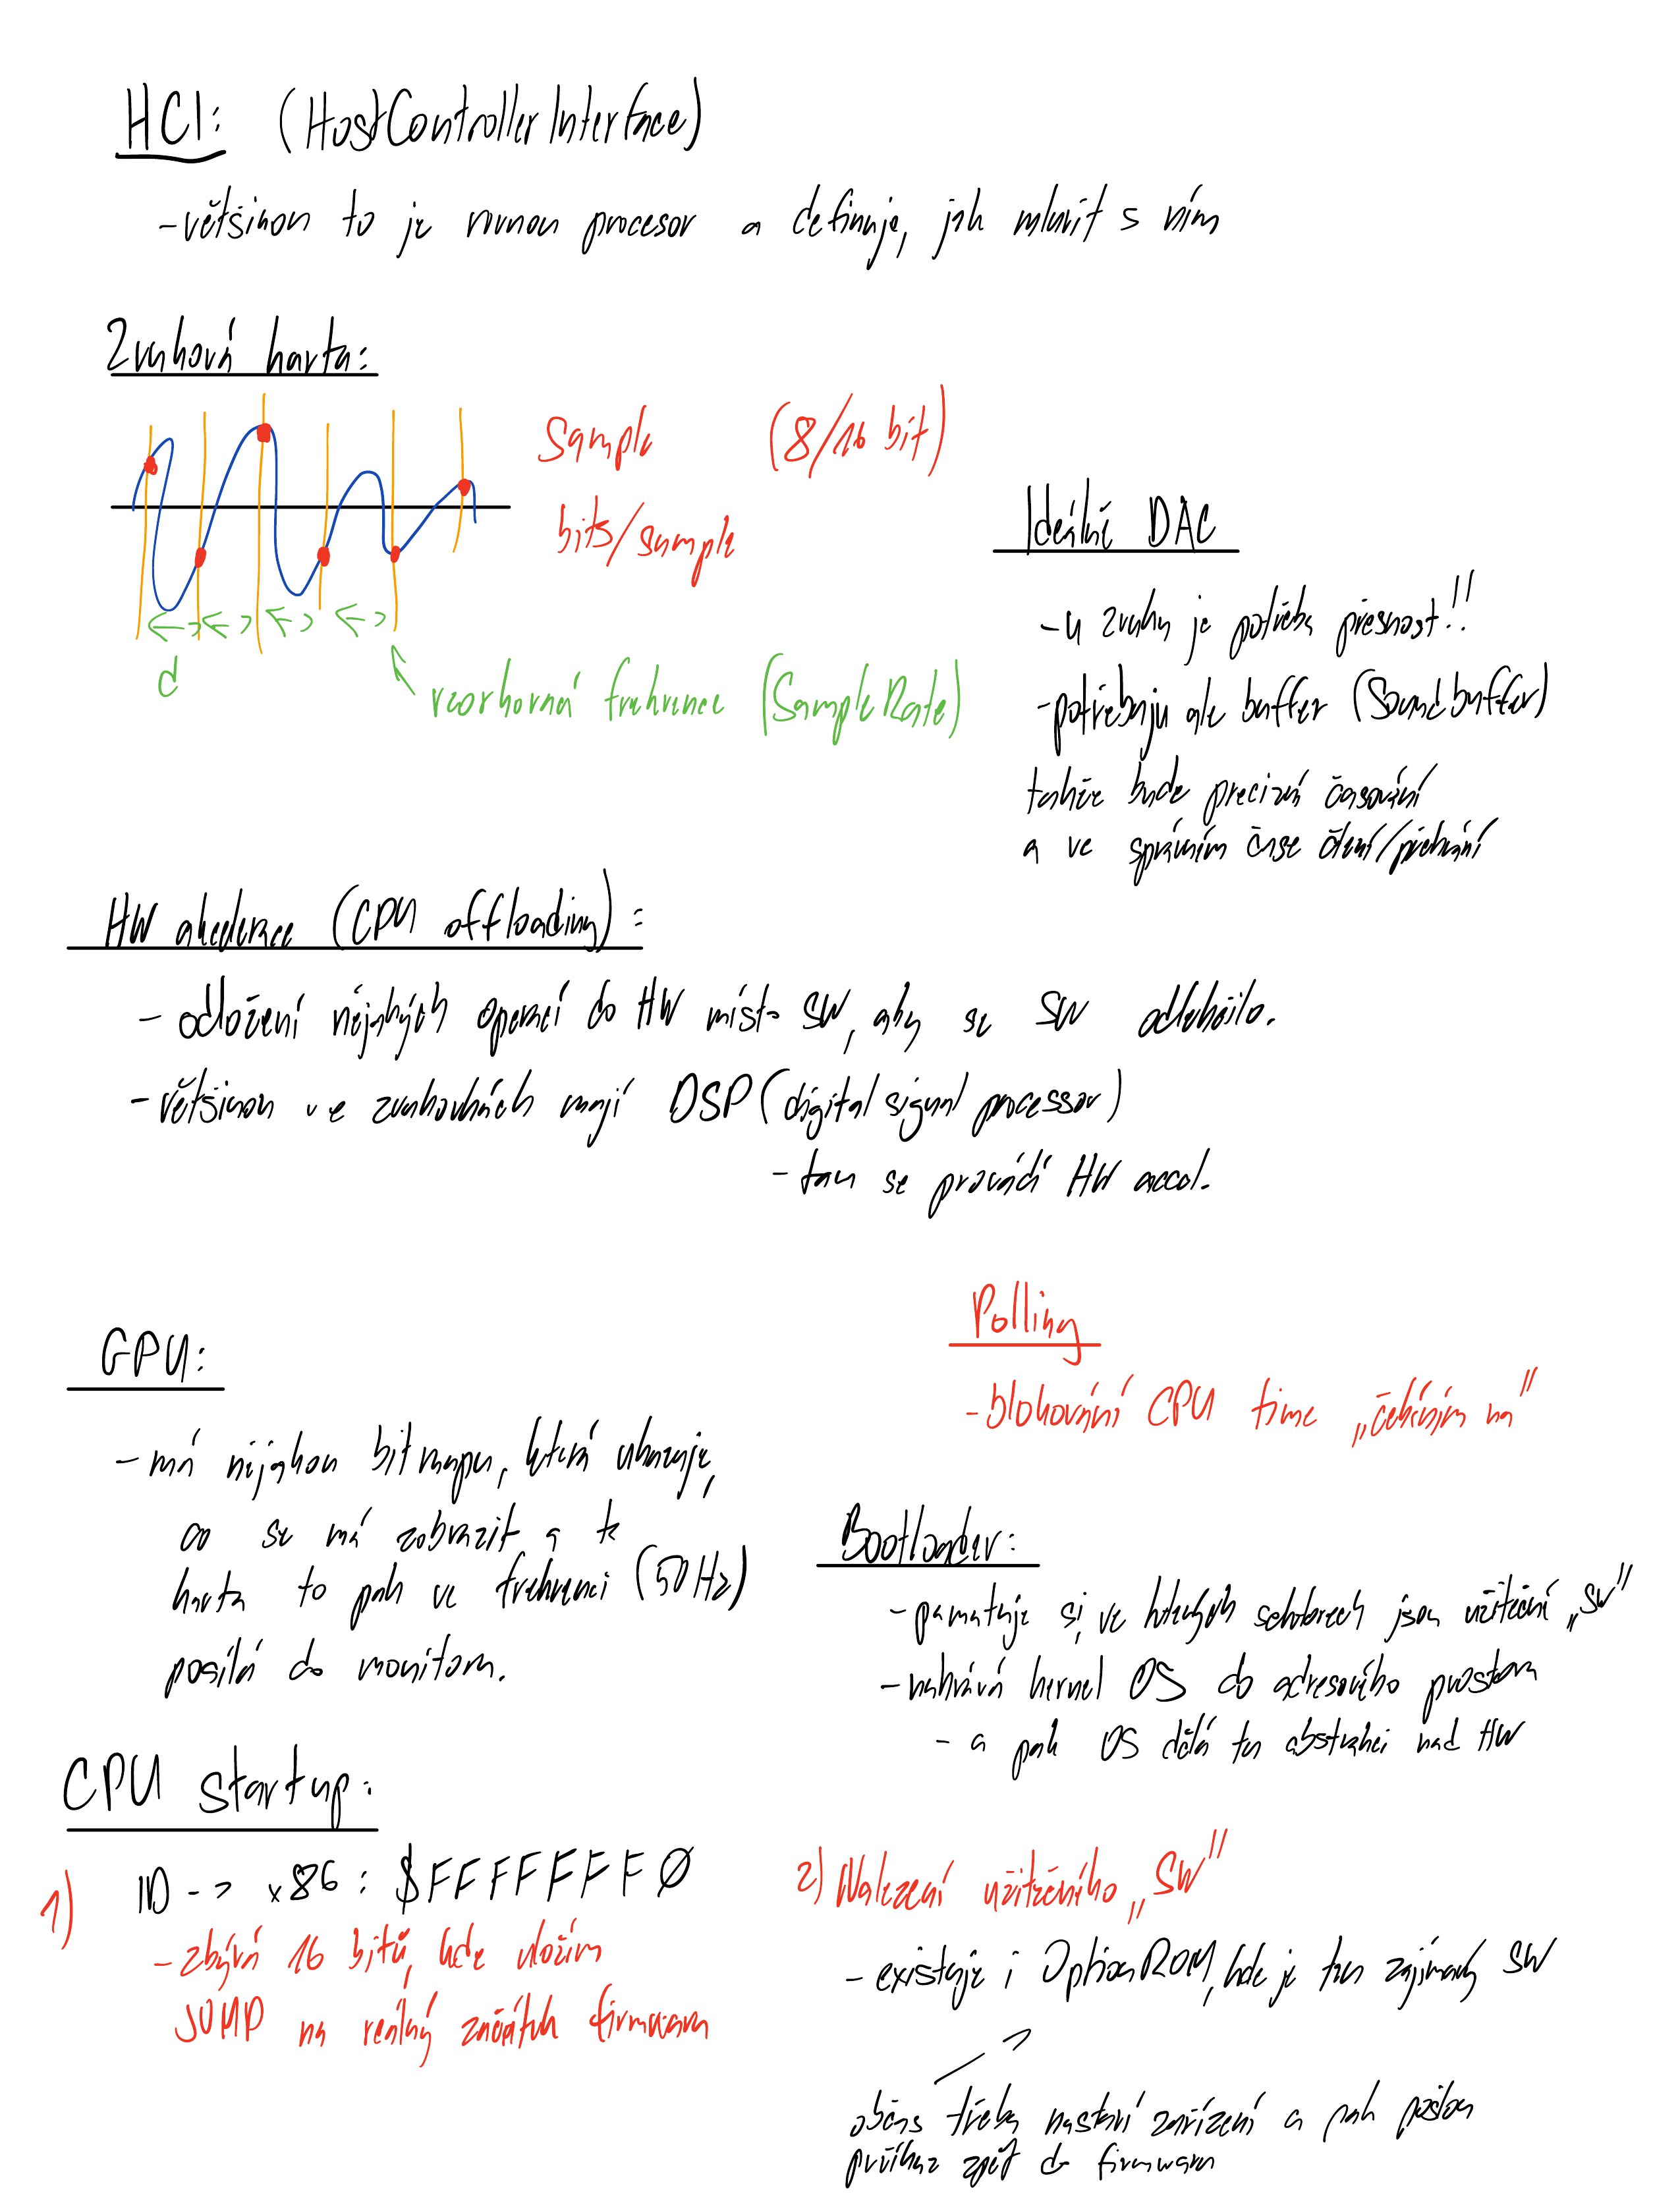 HCI: (HostControllerInterface)
-většinou to je rovnou procesor a definuje, jak mluvit s ním
Zvuková karta:
Sample (8/16 bit)
bits/sample
d
vzorkovací frekvence (SampleRate)
Ideální DAC
-u zvuku je potřeba přesnost!!
-potřebuju ale buffer (Soundbuffer)
takže bude precizní časování
a ve správním čase čtení/přehrání
HW akcelerace (CPU offloading):
- odložení nějakých operací do HW místo SW, aby se SW odlehčilo.
- většinou ve zvukovkách mají DSP (digital signal processor)
- tam se provádí HW accel.
GPU:
- má nějakou bitmapu, která ukazuje,
co se má zobrazit a ta
karta to pak ve frekvenci (50Hz)
posílá do monitoru.
Polling
-blokování CPU time „čekáním na"
Bootloader:
- pamatuje si, ve kterých sektorech jsou užiteční „SW"
- nahrává kernel OS do adresového prostoru
- a pak OS dělá tu abstrakci nad HW
CPU startup:
1) -> x86: $FFFFFFF0
- zbývá 16 bitů, kde uložím
JUMP na reálný začátek firmwaru
2) Nalezení užitečního „SW"
- existuje i OptionROM, kde je ten zajímavý SW
občas třeba nastaví zařízení a pak pošlou
příkaz zpět do firmwaru